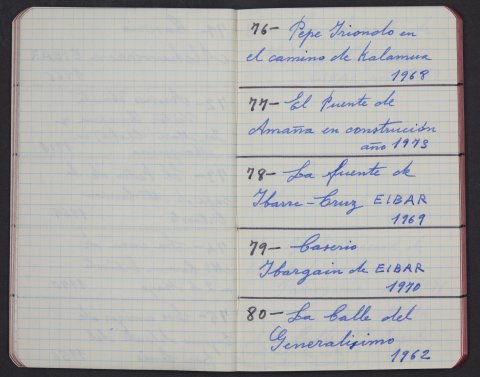 76- Pepe Iriondo en
el camino de Kalamua
1968
77- El Puente de
Amaña en construción
año 1973
78- La fuente de
Ibarra-Cruz EIBAR
1969
79- Caserio
Ibargain de EIBAR
1970
80- La Calle del
Generalisimo
1962